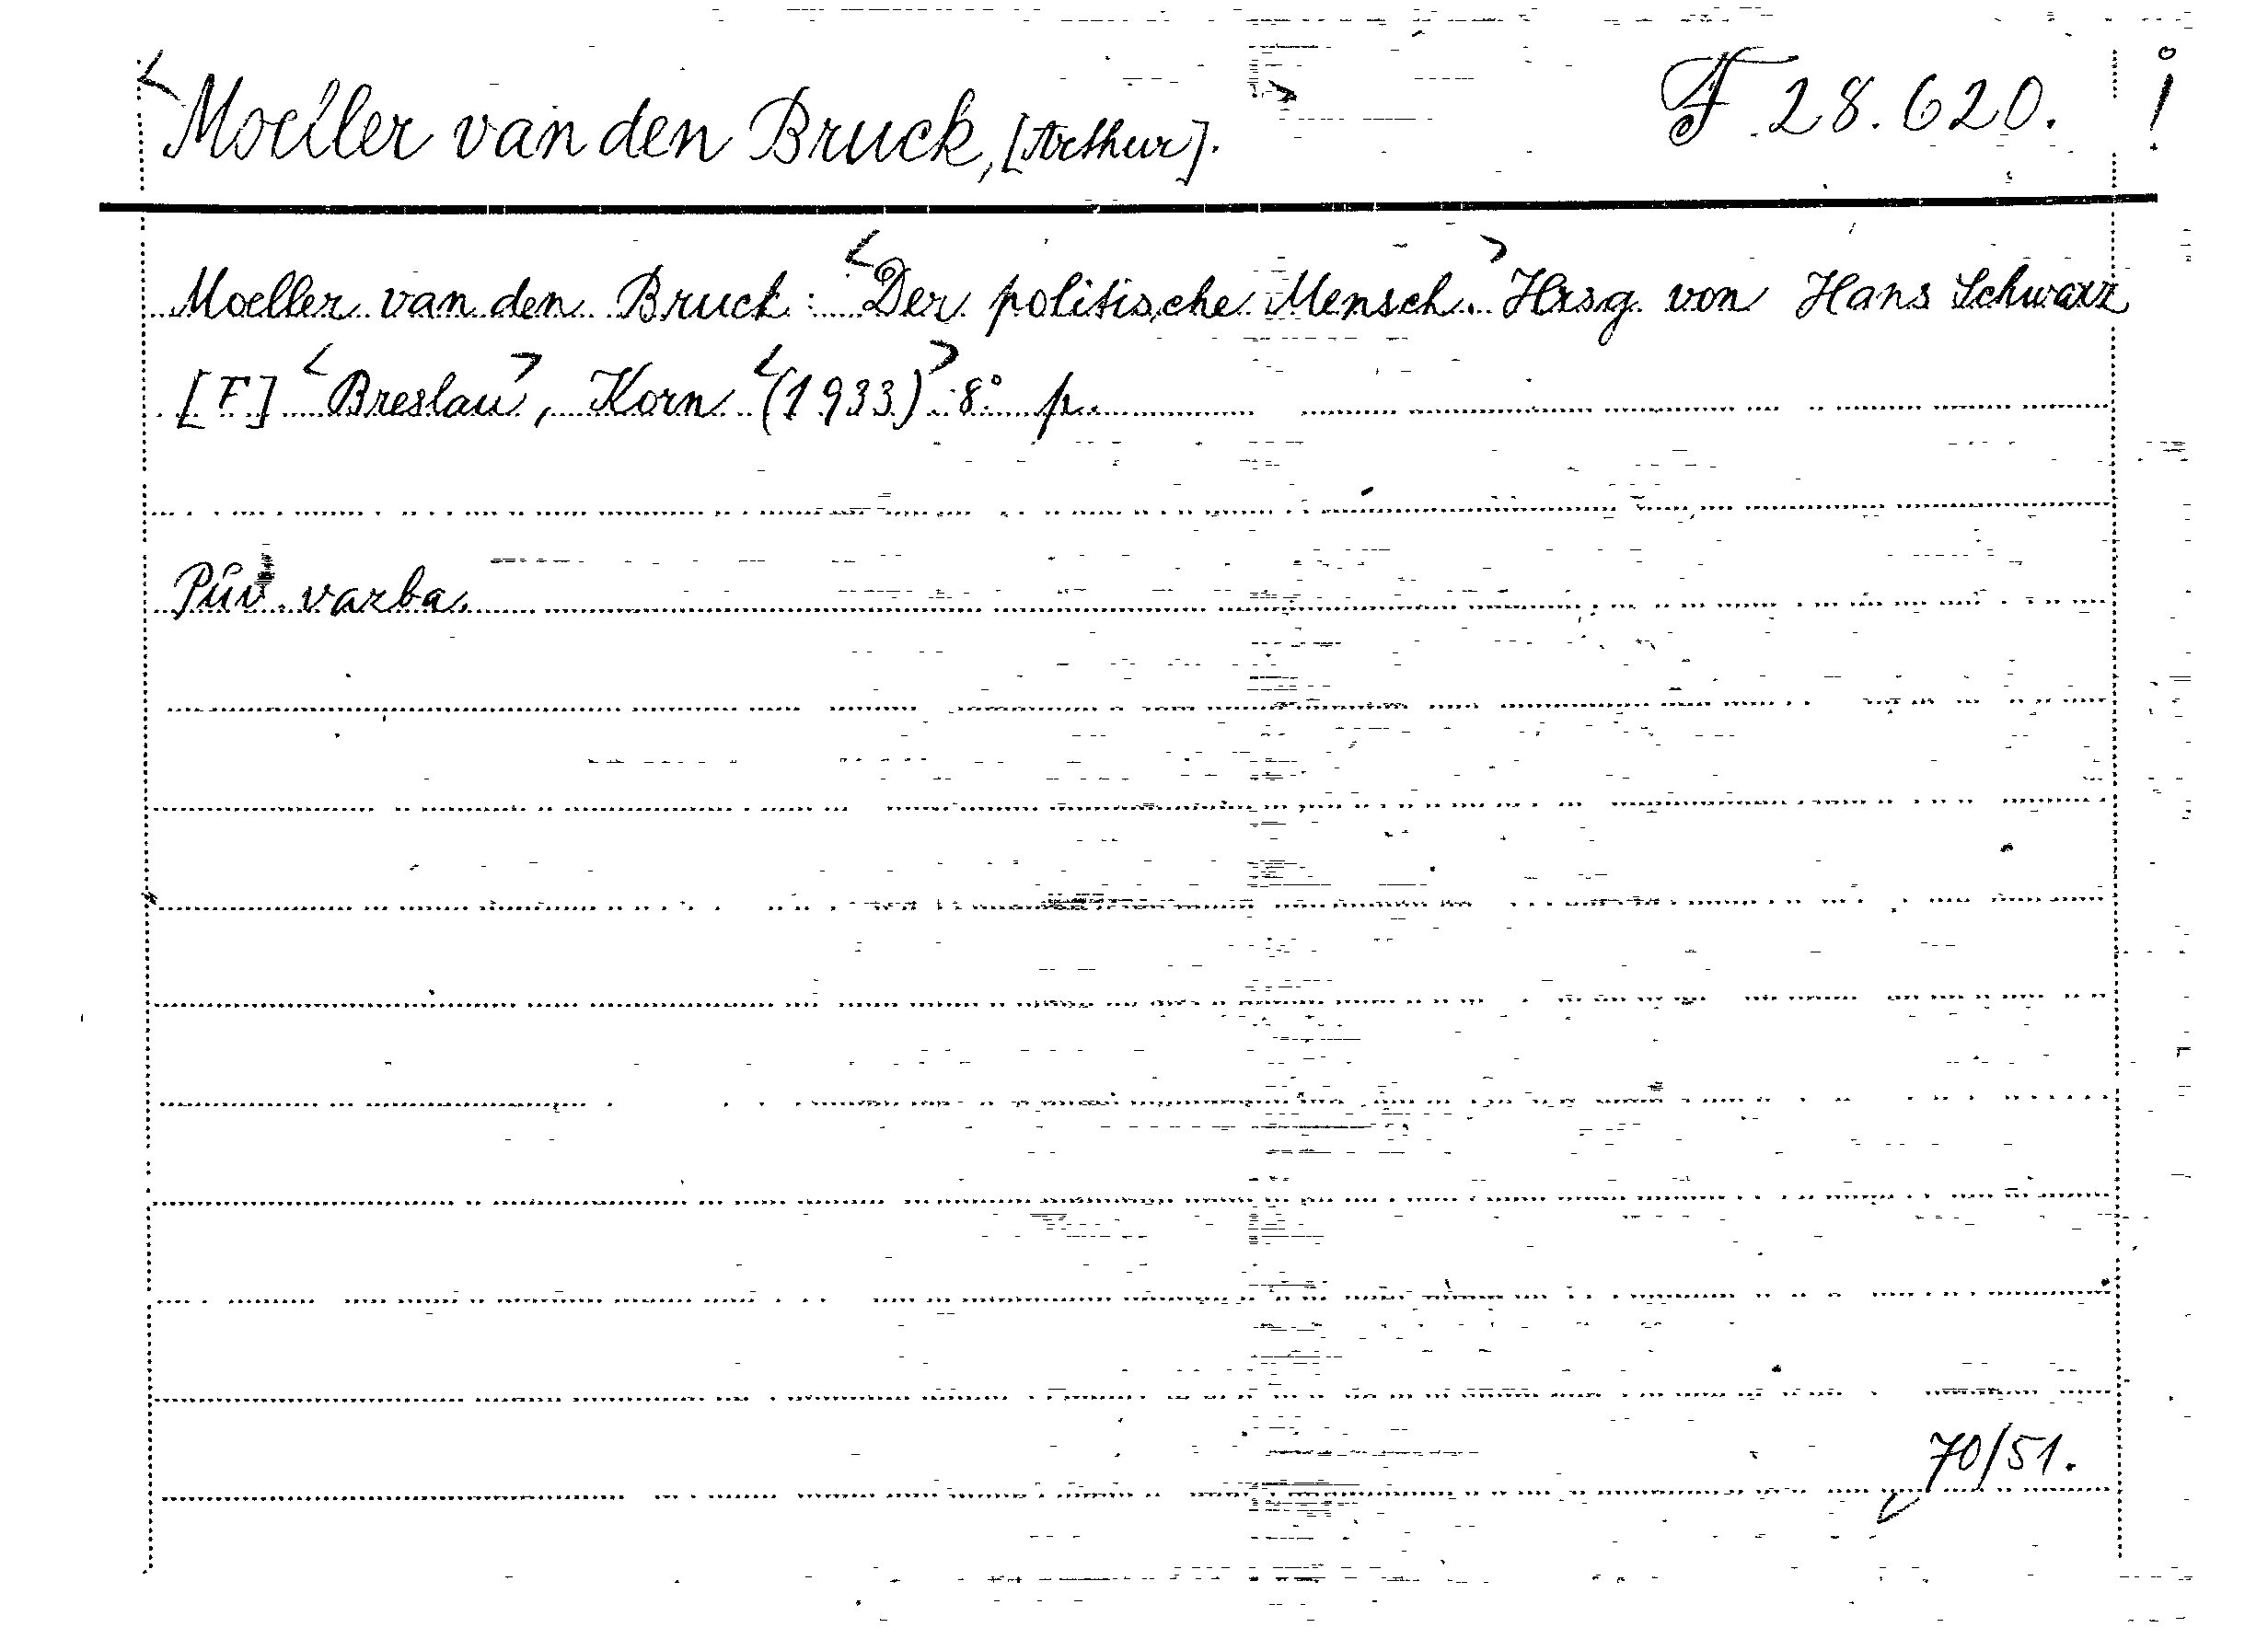 <Moeller van den Bruck, [Arthur].> F 28.620. !
Moeller van den Bruck: <Der politische Mensch.> Hrsg. von Hans Schwarz
[F] <Breslau>, Korn <(1933)> 8° p.
Pův. vazba.
70/51.